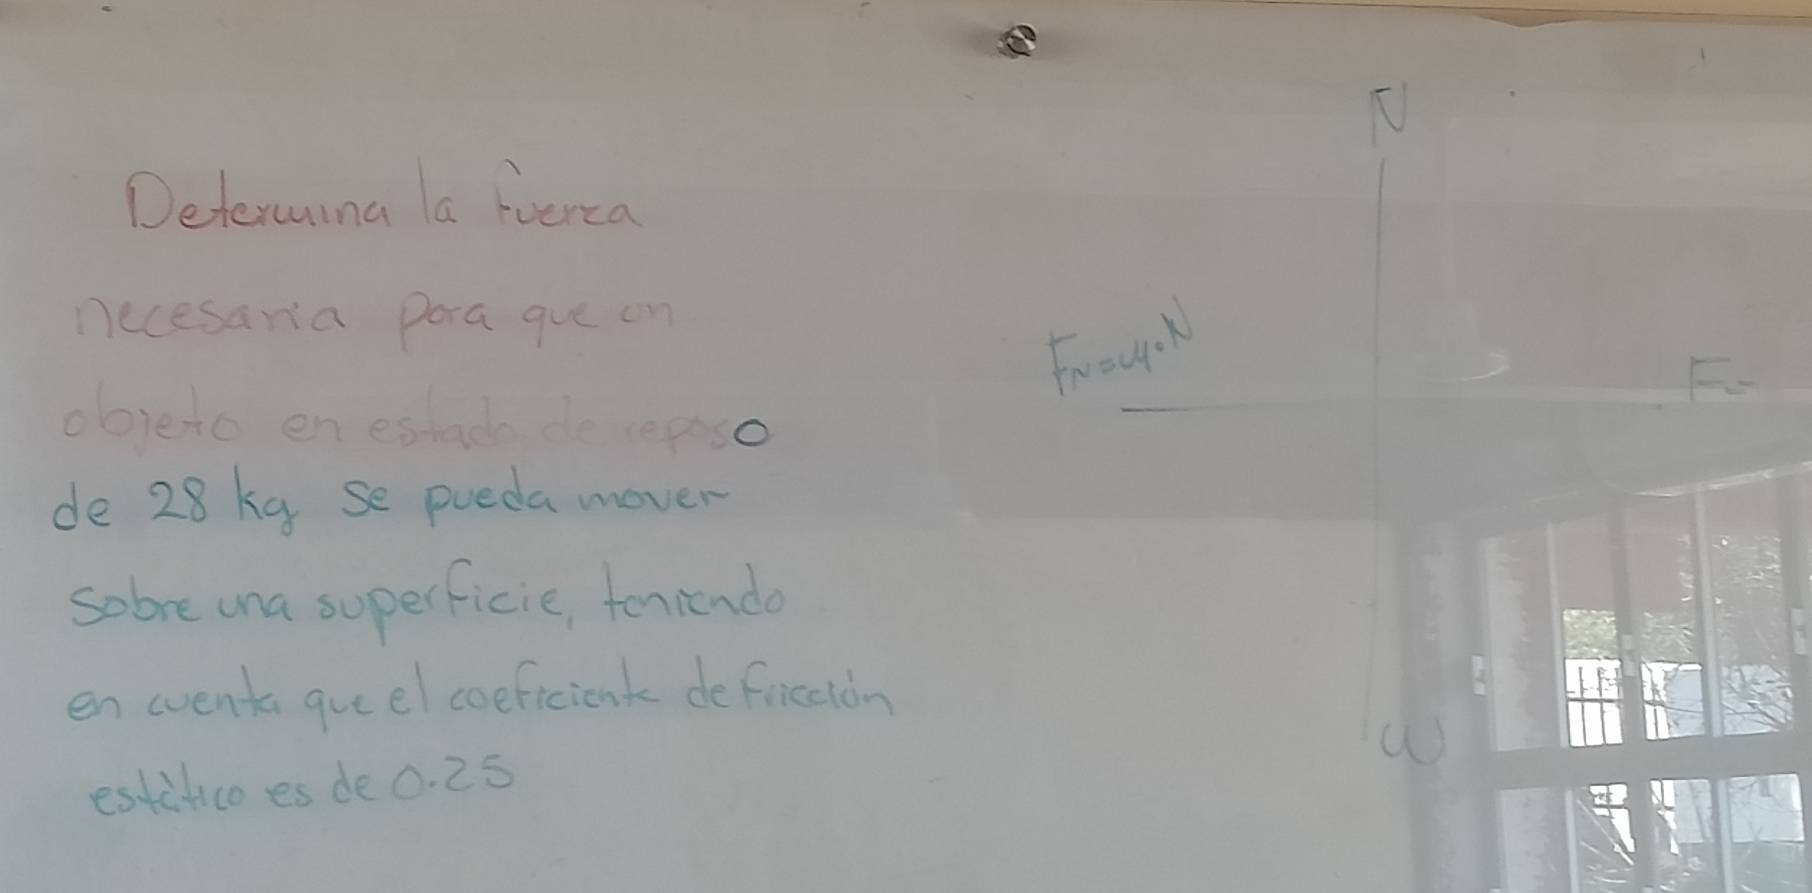 Determina la fuerza
necesaria para que un
objeto en estado de reposo
de 28 kg se pueda mover
sobre una superficie, teniendo
en cuenta que el coeficiente de fricción
estático es de 0.25
N
FN=μ•N
F
W